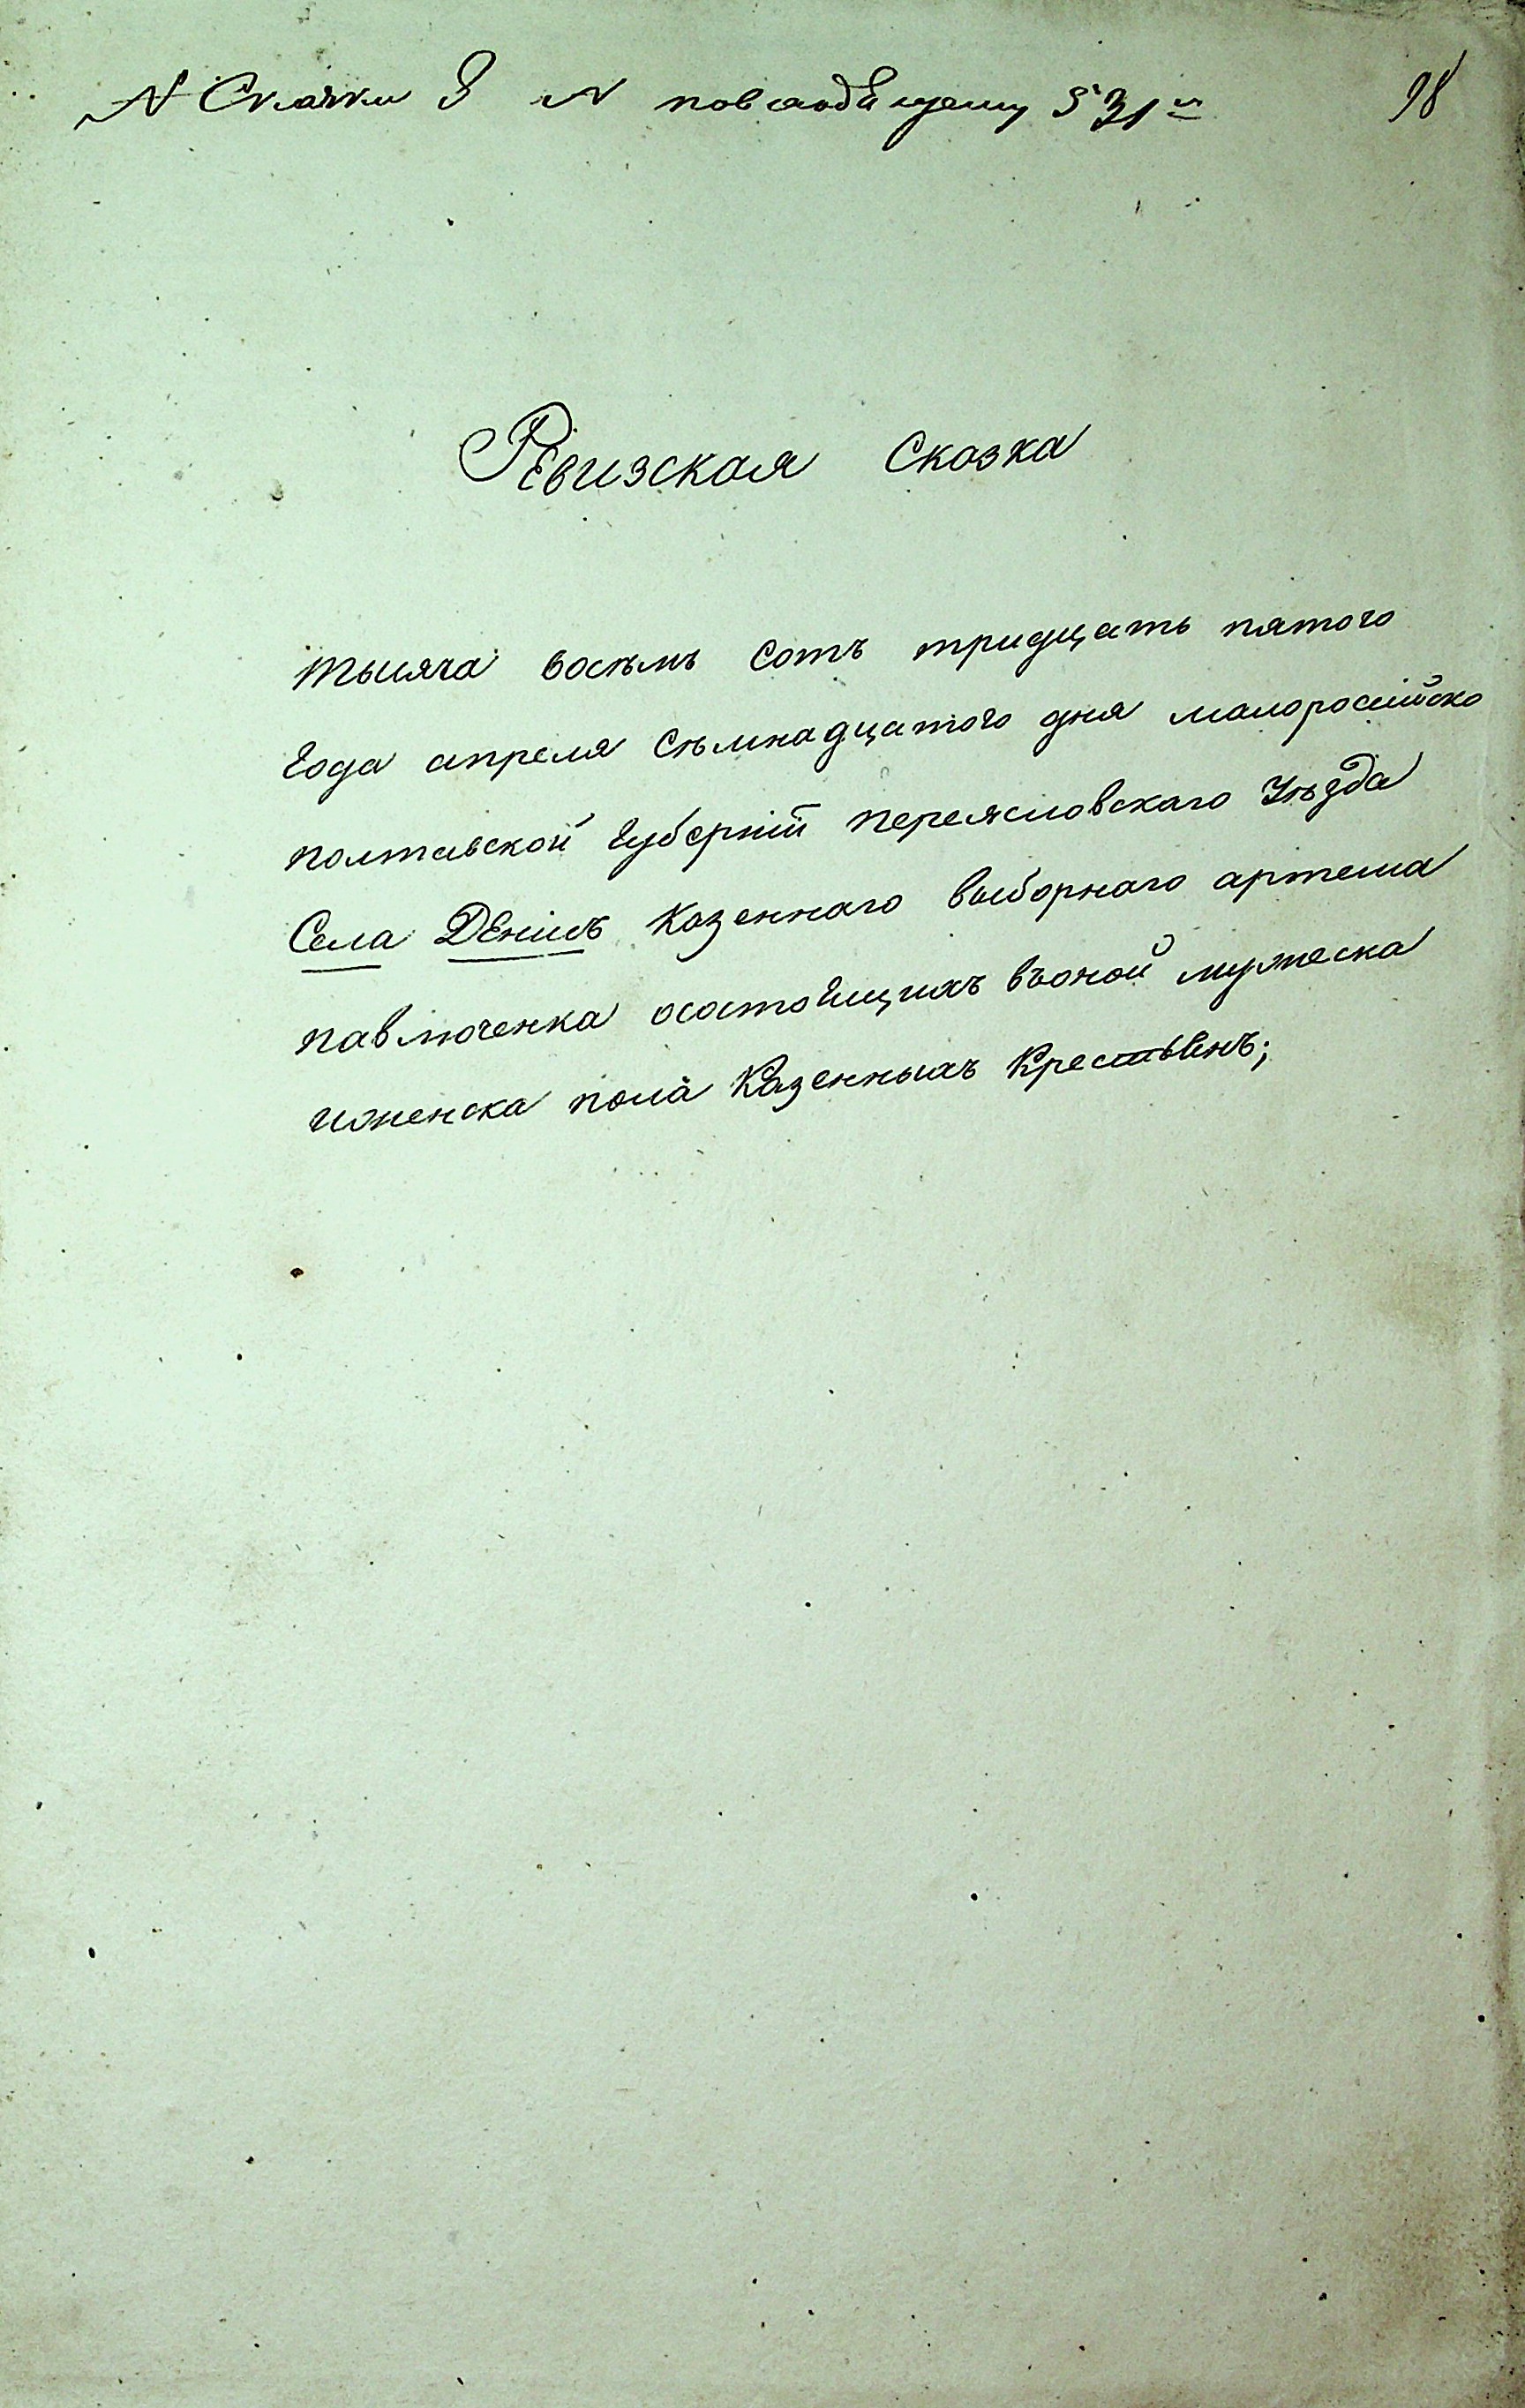 N Скаски 8 N повходящему 531й
98
Ревизская Сказка
тысяча восѣмъ сотъ тридцать пятого
года апреля сѣмнадцатого дня малоросійско
полтавской губерніи переясловскаго уѣзда
Села Денисъ казеннаго выборнаго артема
павлюченка осостоящихъ въоной мужеска
иженска пола казенныхъ крестьянъ;